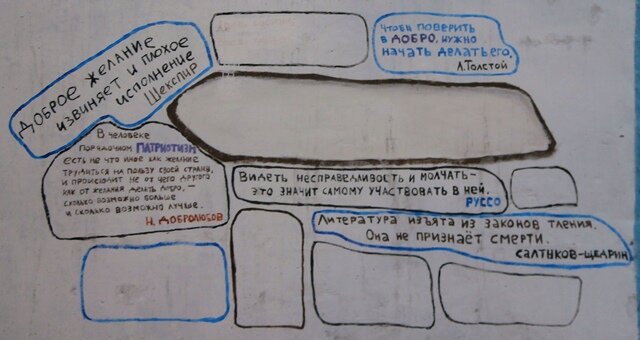 Доброе желание
извиняет и плохое
исполнение
Шекспир
Чтобы поверить
в ДОБРО, нужно
начать делать его.
Л.Толстой
В человеке
порядочном ПАТРИОТИЗМ
есть не что иное как желание
трудиться на пользу своей страны,
и происходит не от чего другого
как от желания делать добро, –
сколько возможно больше
и сколько возможно лучше.
Н. Добролюбов
Видеть несправедливость и молчать –
это значит самому участвовать в ней.
РУССО
Литература изъята из законов тления.
Она не признаёт смерти.
САЛТЫКОВ-ЩЕДРИН